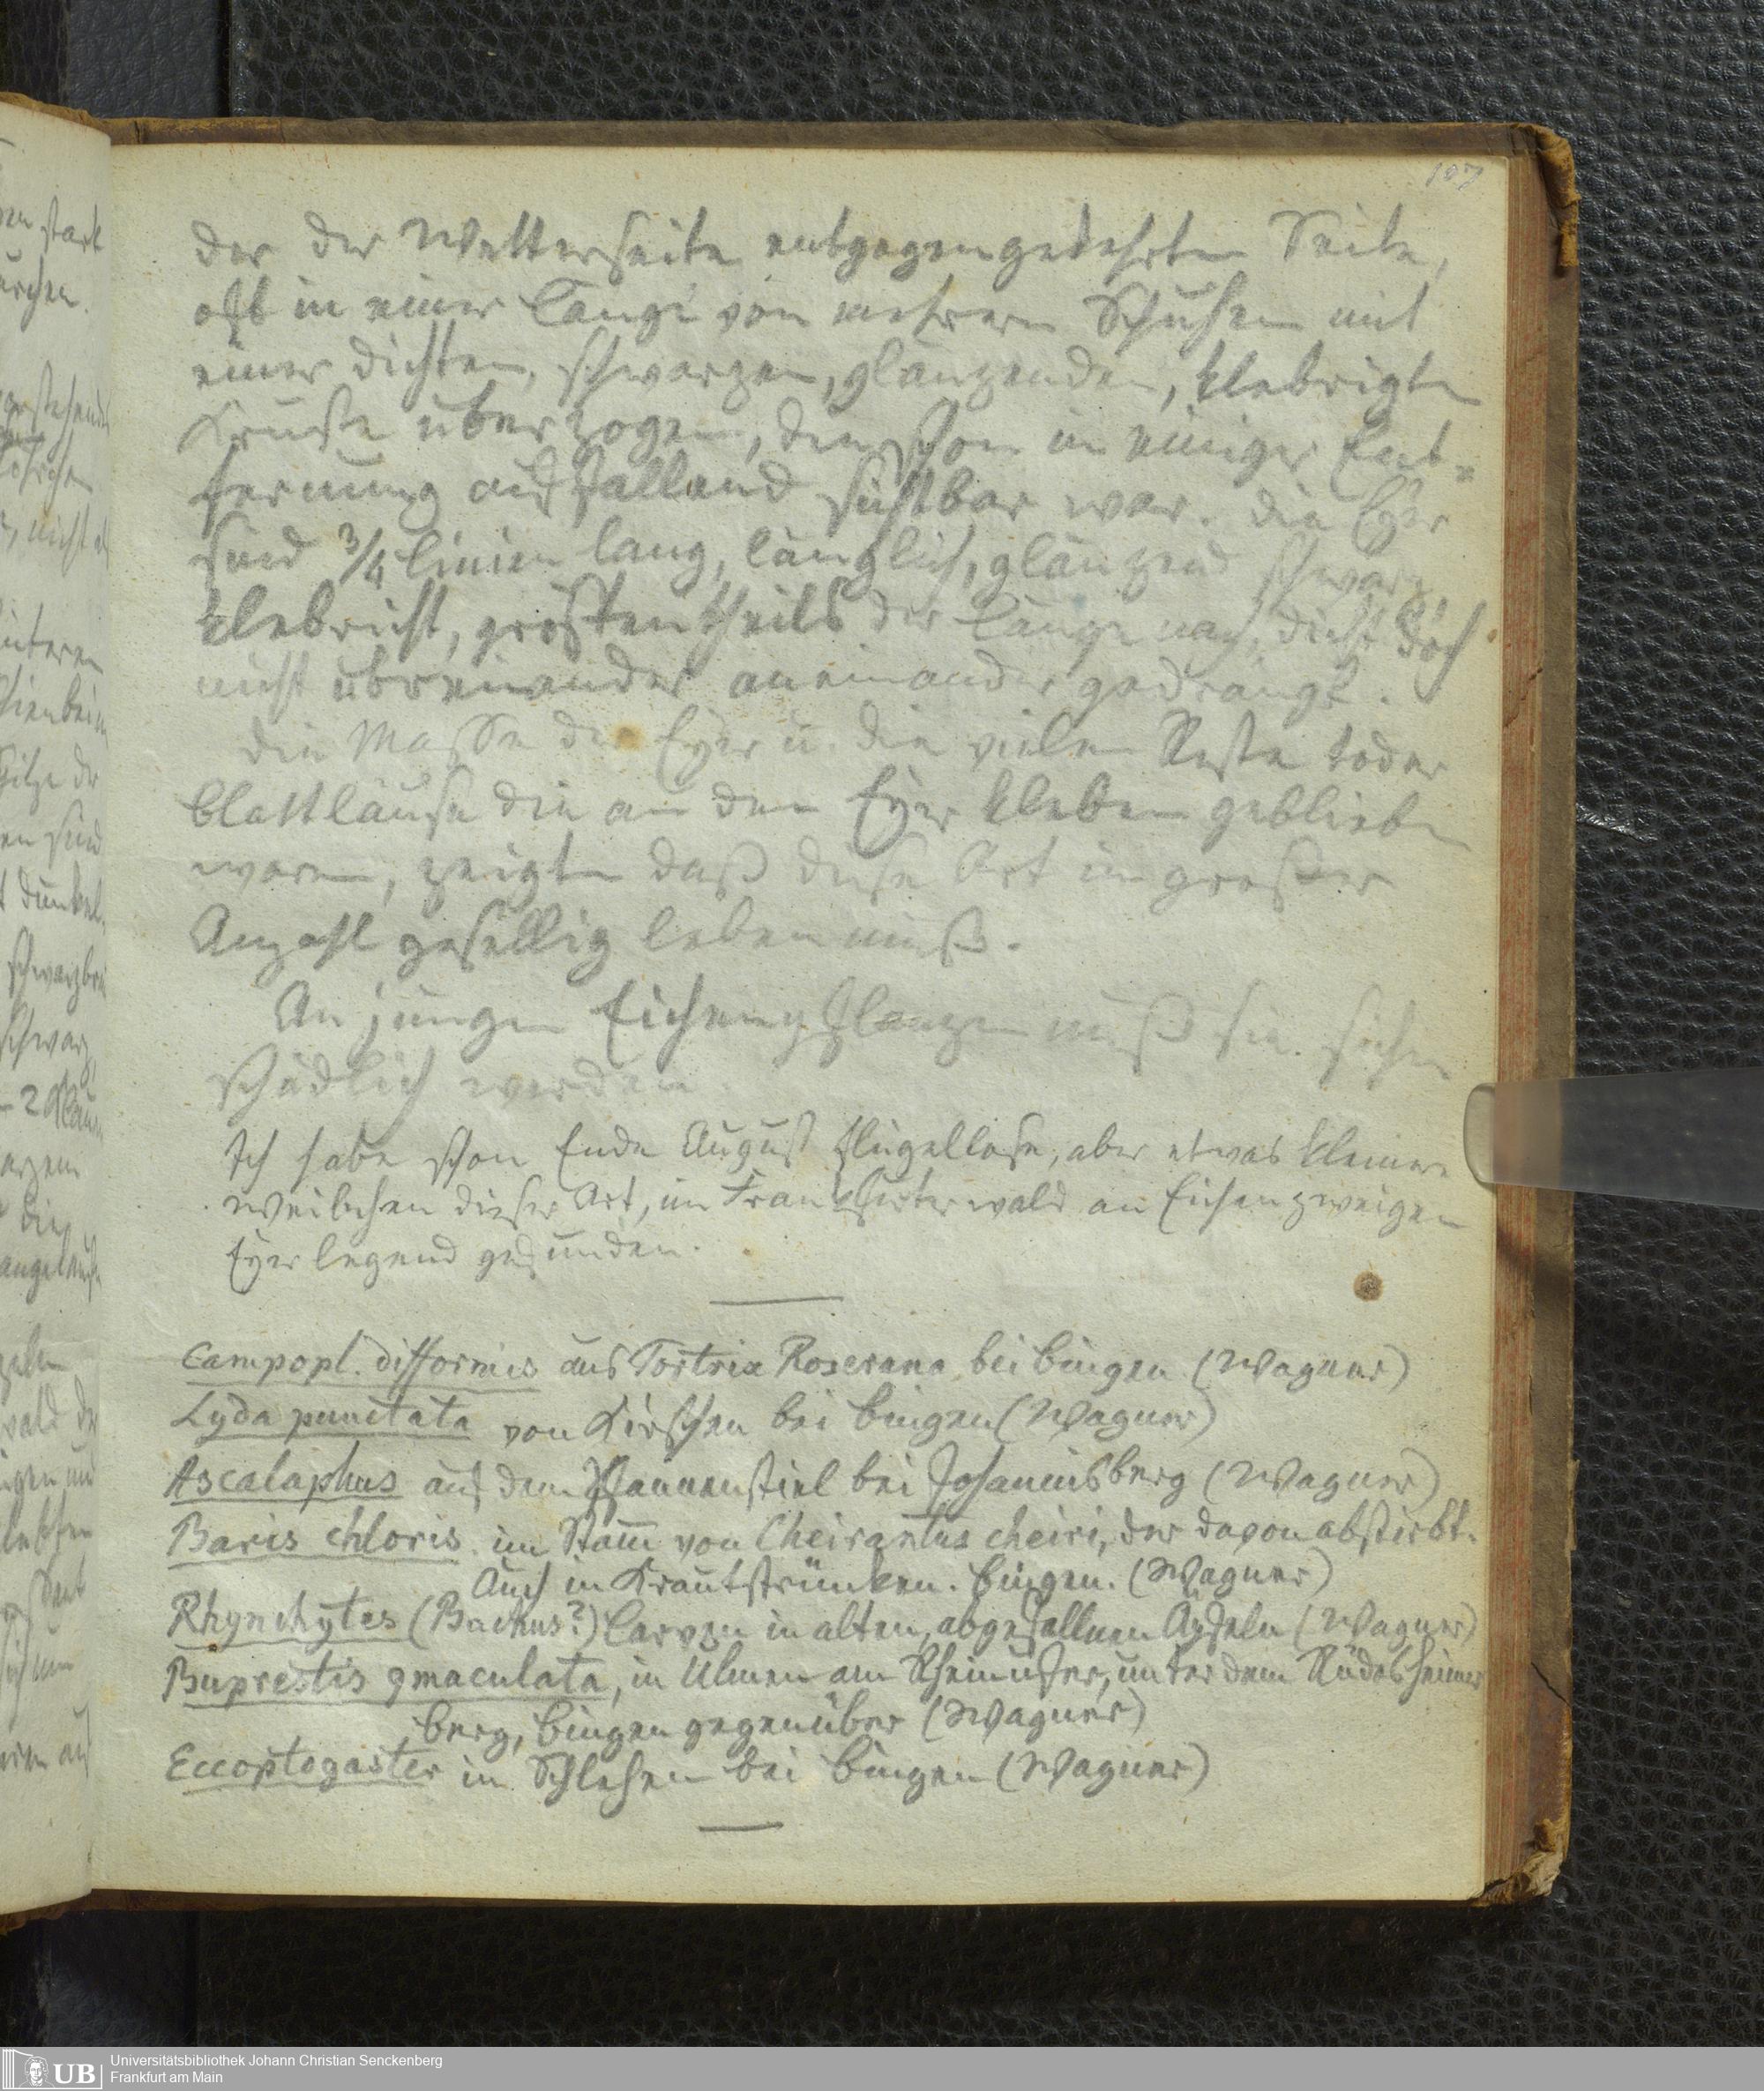 107
der der Wetterseite entgegengekehrten Seite,
oft in einer Länge von mehrern Schuhen mit
einer dichten, schwarzen, glänzenden, klebrigten
Kruste überzogen, die schon in einiger Ent-
fernung auffallend sichtbar war. Die Eyer
sind 3/4 Linien lang, länglich, glänzend schwarz,
klebricht, größtentheils der Länge nach, dicht doch
nicht übereinander aneinander gedrängt.
Die Masse der Eyer u. die vielen Reste toder
Blattläuse die an den Eyer kleben geblieben
waren, zeigten daß diese Art in großer
Anzahl gesellig leben muß.
An jungen Eichenpflanzen muß sie sicher
schädlich werden
Ich habe schon Ende August flügellose, aber etwas kleinere
Weibchen dieser Art, im Frankfurter wald an Eichenzweigen
Eyer legend gefunden.
Campopl. difformis aus Tortrix Roserana bei Bingen (Wagner)
Lyda punctata von Kirschen bei Bingen (Wagner)
Ascalaphus auf dem Pfannenstiel bei Johannisberg (Wagner)
Baris chloris im Stam̄ von Cheirantus cheiri, der davon abstirbt.
Auch in Krautstrünken. Bingen. (Wagner)
Rhynchytes (Bachus?) Larven in alten, abgefallnen Äpfeln (Wagner)
Buprestis 9maculata, in Ulmen am Rheinufer, unter dem Rüdesheimer
berg, Bingen gegenüber (Wagner)
Eccoptogaster in Schlehen bei Bingen (Wagner)
UB
Universitätsbibliothek Johann Christian Senckenberg
Frankfurt am Main